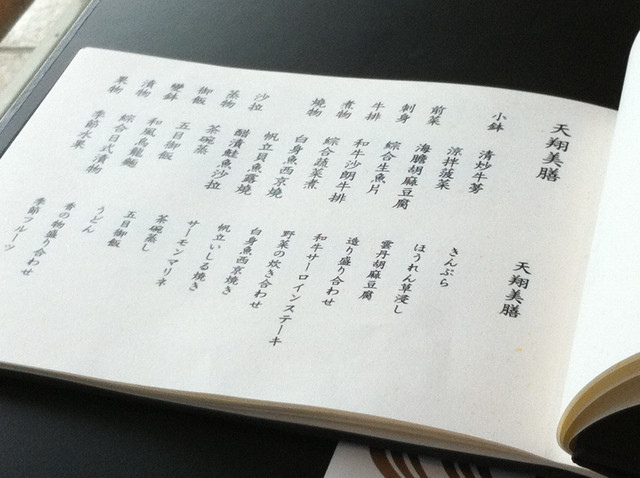 天翔美膳
小鉢 清炒牛蒡
涼拌菠菜
前菜 海膽胡麻豆腐
刺身 綜合生魚片
牛排 和牛沙朗牛排
煮物 綜合蔬菜煮
燒物 白身魚西京燒
帆立貝魚露燒
沙拉 醋漬鮭魚沙拉
蒸物 茶碗蒸
御飯 五目御飯
變鉢 和風烏龍麵
漬物 綜合日式漬物
果物 季節水果
天翔美膳
きんぷら
ほうれん草浸し
雲丹胡麻豆腐
造り盛り合わせ
和牛サーロインステーキ
野菜の炊き合わせ
白身魚西京焼き
帆立いしる焼き
サーモンマリネ
茶碗蒸し
五目御飯
うどん
香の物盛り合わせ
季節フルーツ